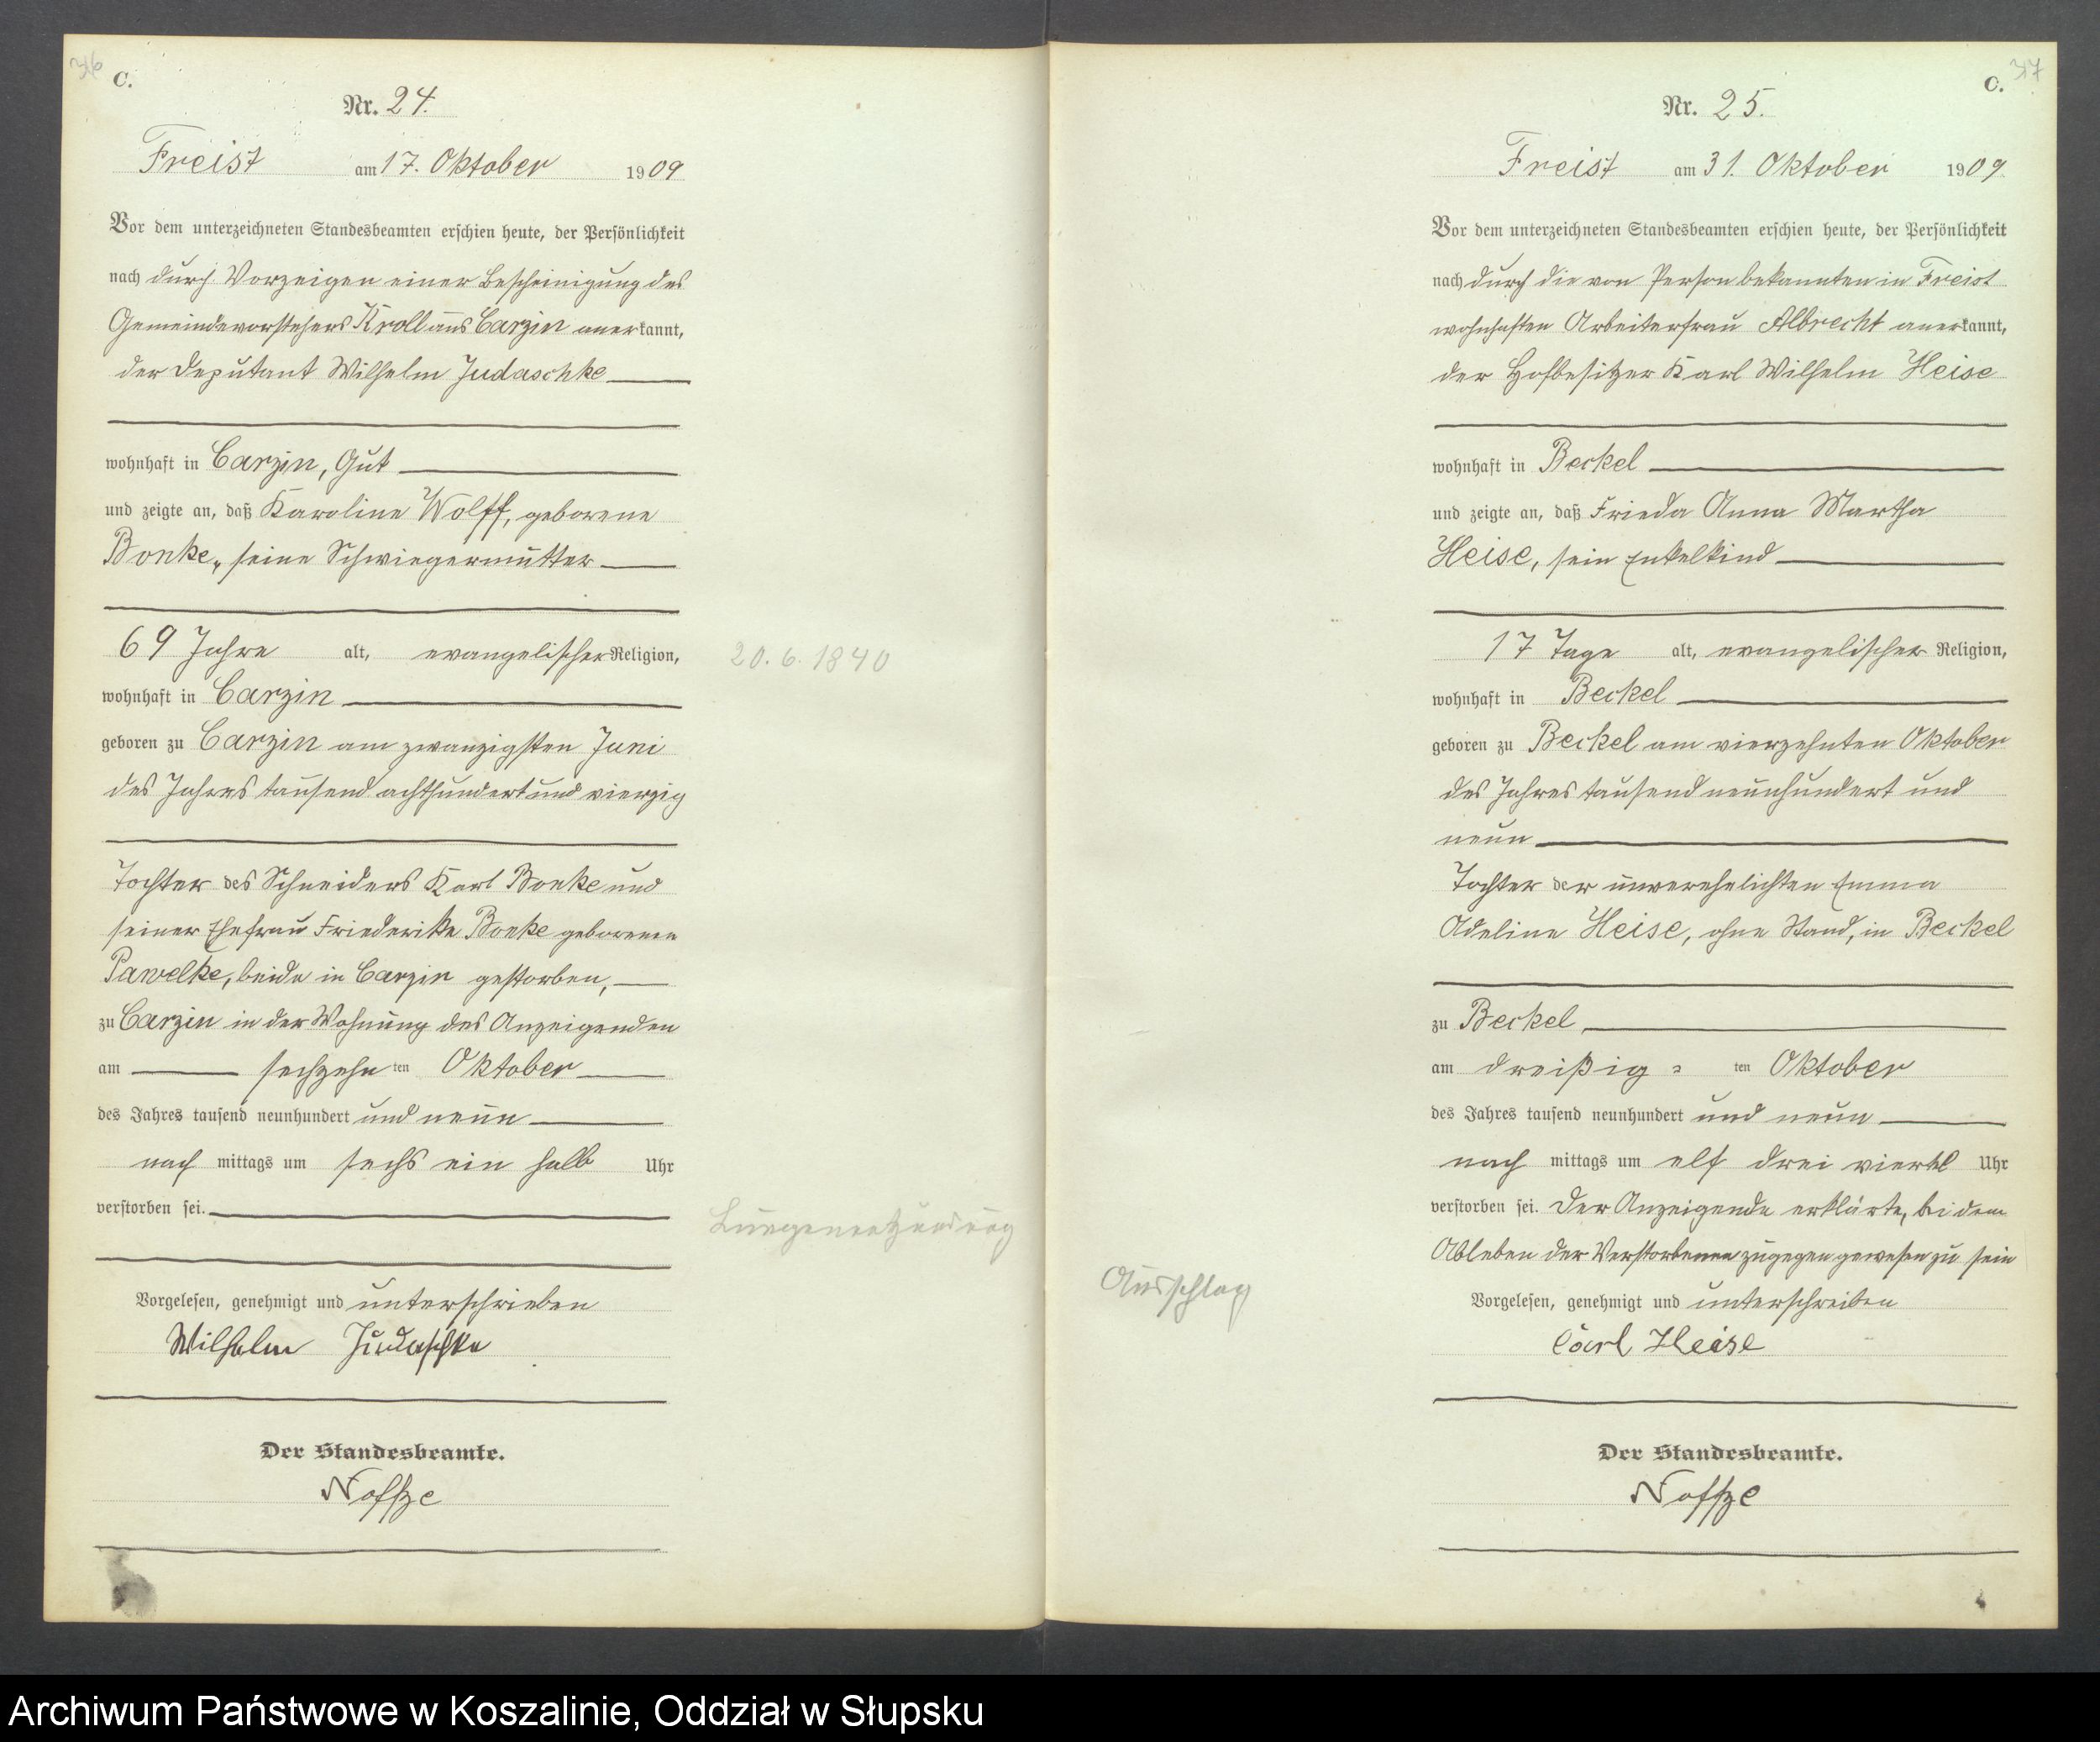 36
C.
Nr. 24.
Freist am 17. Oktober 1909
Vor dem unterzeichneten Standesbeamten erschien heute, der Persönlichkeit
nach durch Vorzeigen einer Bescheinigung des
Gemeindevorstehers Kroll aus Carzin anerkannt,
der Deputant Wilhelm Judaschke
wohnhaft in Carzin, Gut
und zeigte an, daß Karoline Wolff, geborene
Bonke, seine Schwiegermutter
69 Jahre alt, evangelischer Religion,
20. 6. 1840
wohnhaft in Carzin
geboren zu Carzin am zwanzigsten Juni
des Jahres tausend achthundert und vierzig
Tochter des Schneiders Karl Bonke und
seiner Ehefrau Friederike Bonke geborenen
Pawelke, beide in Carzin gestorben,
zu Carzin in der Wohnung des Anzeigenden
am sechzehn ten Oktober
des Jahres tausend neunhundert und neun
nach mittags um sechs ein halb Uhr
verstorben sei.
Lungenentzündung
Vorgelesen, genehmigt und unterschrieben
Wilhelm Judaschke
Der Standesbeamte.
Noffze
37
C.
Nr. 25.
Freist am 31. Oktober 1909
Vor dem unterzeichneten Standesbeamten erschien heute, der Persönlichkeit
nach durch die von Person bekannten in Freist
wohnhaften Arbeiterfrau Albrecht anerkannt,
der Hofbesitzer Karl Wilhelm Heise
wohnhaft in Beckel
und zeigte an, daß Frieda Anna Martha
Heise, sein Enkelkind
17 Tage alt, evangelischer Religion,
wohnhaft in Beckel
geboren zu Beckel am vierzehnten Oktober
des Jahres tausend neunhundert und
neun
Tochter der unverehelichten Emma
Adeline Heise, ohne Stand, in Beckel
zu Beckel,
am dreißig = ten Oktober
des Jahres tausend neunhundert und neun
nach mittags um elf drei viertel Uhr
verstorben sei. Der Anzeigende erklärte, bei dem
Ableben der Verstorbenen zugegen gewesen zu sein
Ausschlag
Vorgelesen, genehmigt und unterschreiben
Carl Heise
Der Standesbeamte.
Noffze
Archiwum Państwowe w Koszalinie, Oddział w Słupsku